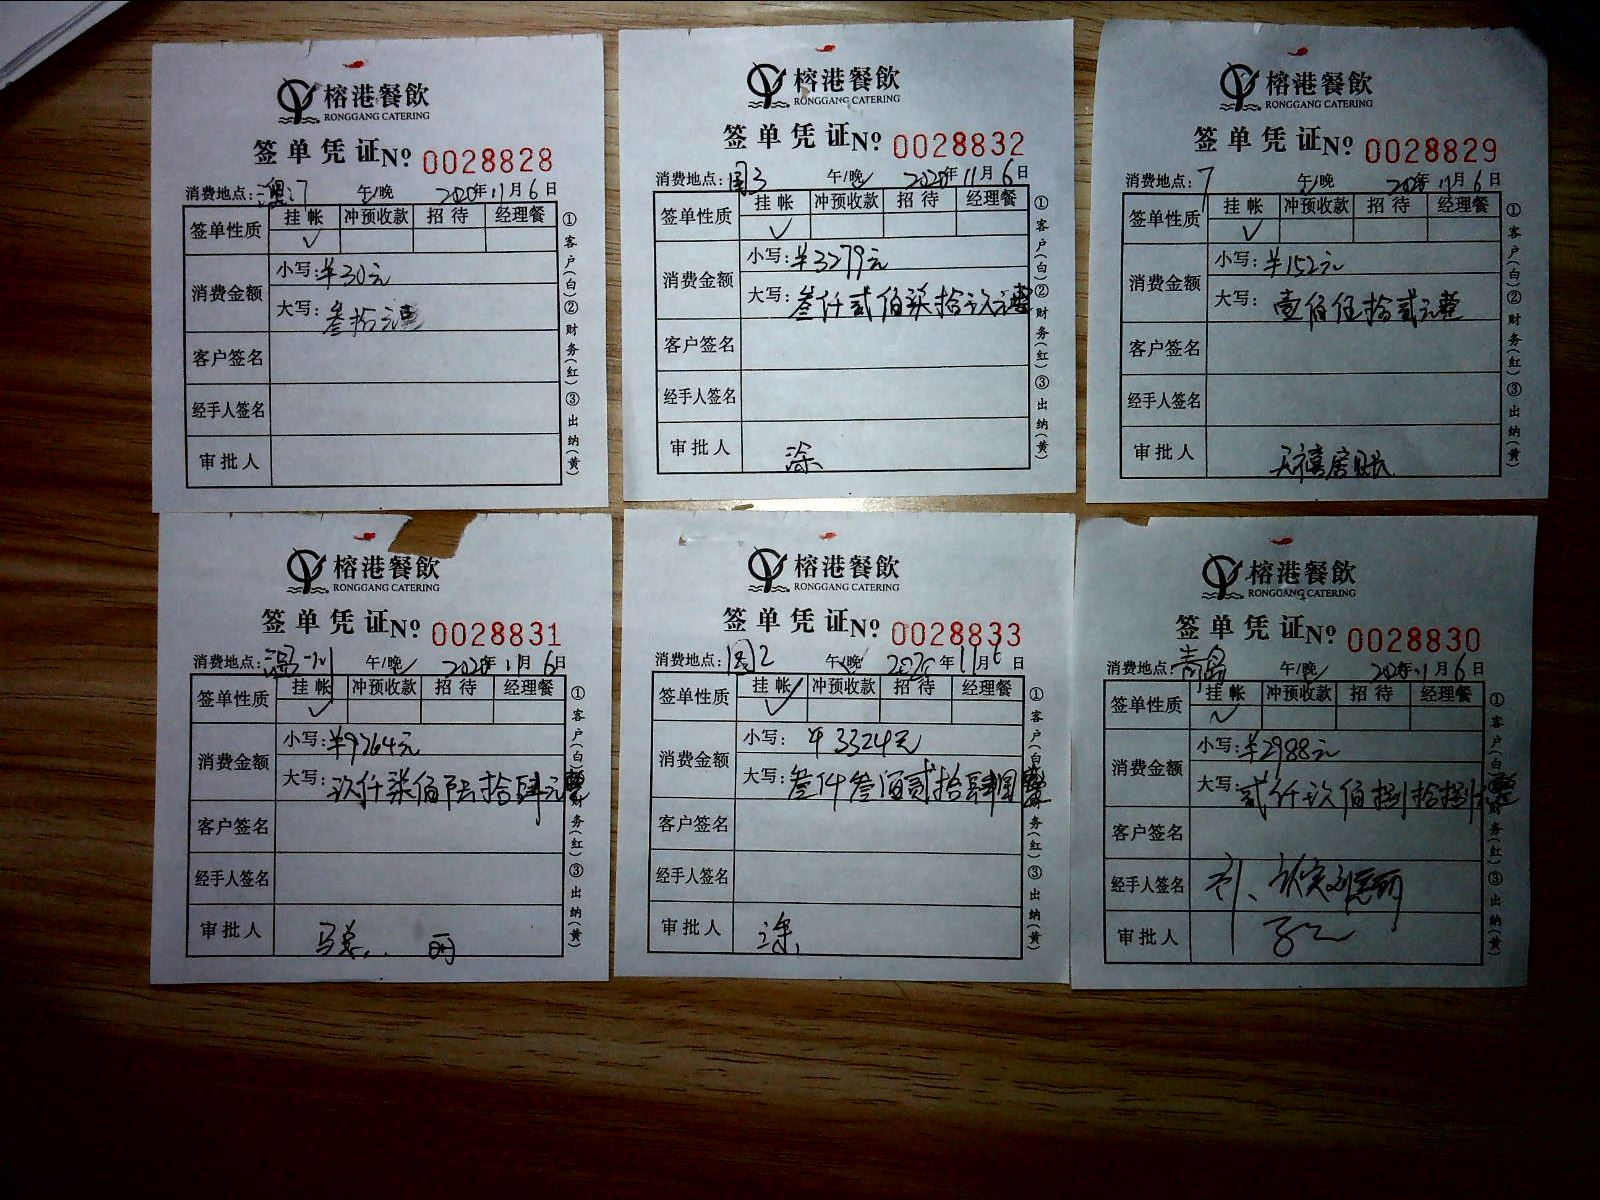 榕港餐飲
RONGGANG CATERING
签单凭证 Nº 0028828
消费地点:澳门 午/晚 2020年11月6日
签单性质 挂帐 冲预收款 招待 经理餐
✓
消费金额 小写:¥30元
大写:叁拾元整
客户签名
经手人签名
审批人
①客户(白)②财务(红)③出纳(黄)
榕港餐飲
RONGGANG CATERING
签单凭证 Nº 0028832
消费地点:园3 午/晚 2020年11月6日
签单性质 挂帐 冲预收款 招待 经理餐
✓
消费金额 小写:¥3279元
大写:叁仟贰佰柒拾玖元整
客户签名
经手人签名
审批人 涂
①客户(白)②财务(红)③出纳(黄)
榕港餐飲
RONGGANG CATERING
签单凭证 Nº 0028829
消费地点:7 午/晚 2020年11月6日
签单性质 挂帐 冲预收款 招待 经理餐
✓
消费金额 小写:¥152元
大写:壹佰伍拾贰元整
客户签名
经手人签名
审批人
①客户(白)②财务(红)③出纳(黄)
榕港餐飲
RONGGANG CATERING
签单凭证 Nº 0028831
消费地点: 午/晚 2020年11月6日
签单性质 挂帐 冲预收款 招待 经理餐
✓
消费金额 小写:¥9764元
大写:玖仟柒佰陆拾肆元整
客户签名
经手人签名
审批人
①客户(白)②财务(红)③出纳(黄)
榕港餐飲
RONGGANG CATERING
签单凭证 Nº 0028833
消费地点:园2 午/晚 2020年11月6日
签单性质 挂帐 冲预收款 招待 经理餐
✓
消费金额 小写:¥3324元
大写:叁仟叁佰贰拾肆圆整
客户签名
经手人签名
审批人 涂
①客户(白)②财务(红)③出纳(黄)
榕港餐飲
RONGGANG CATERING
签单凭证 Nº 0028830
消费地点:青岛 午/晚 2020年11月6日
签单性质 挂帐 冲预收款 招待 经理餐
✓
消费金额 小写:¥2988元
大写:贰仟玖佰捌拾捌元整
客户签名
经手人签名
审批人
①客户(白)②财务(红)③出纳(黄)